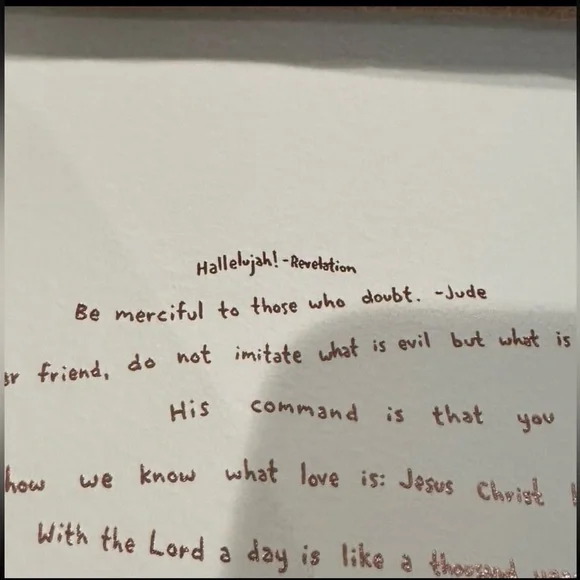 Hallelujah! -Revelation
Be merciful to those who doubt. -Jude
friend, do not imitate what is evil but what is
His command is that you
how we know what love is: Jesus Christ
With the Lord a day is like a thousand